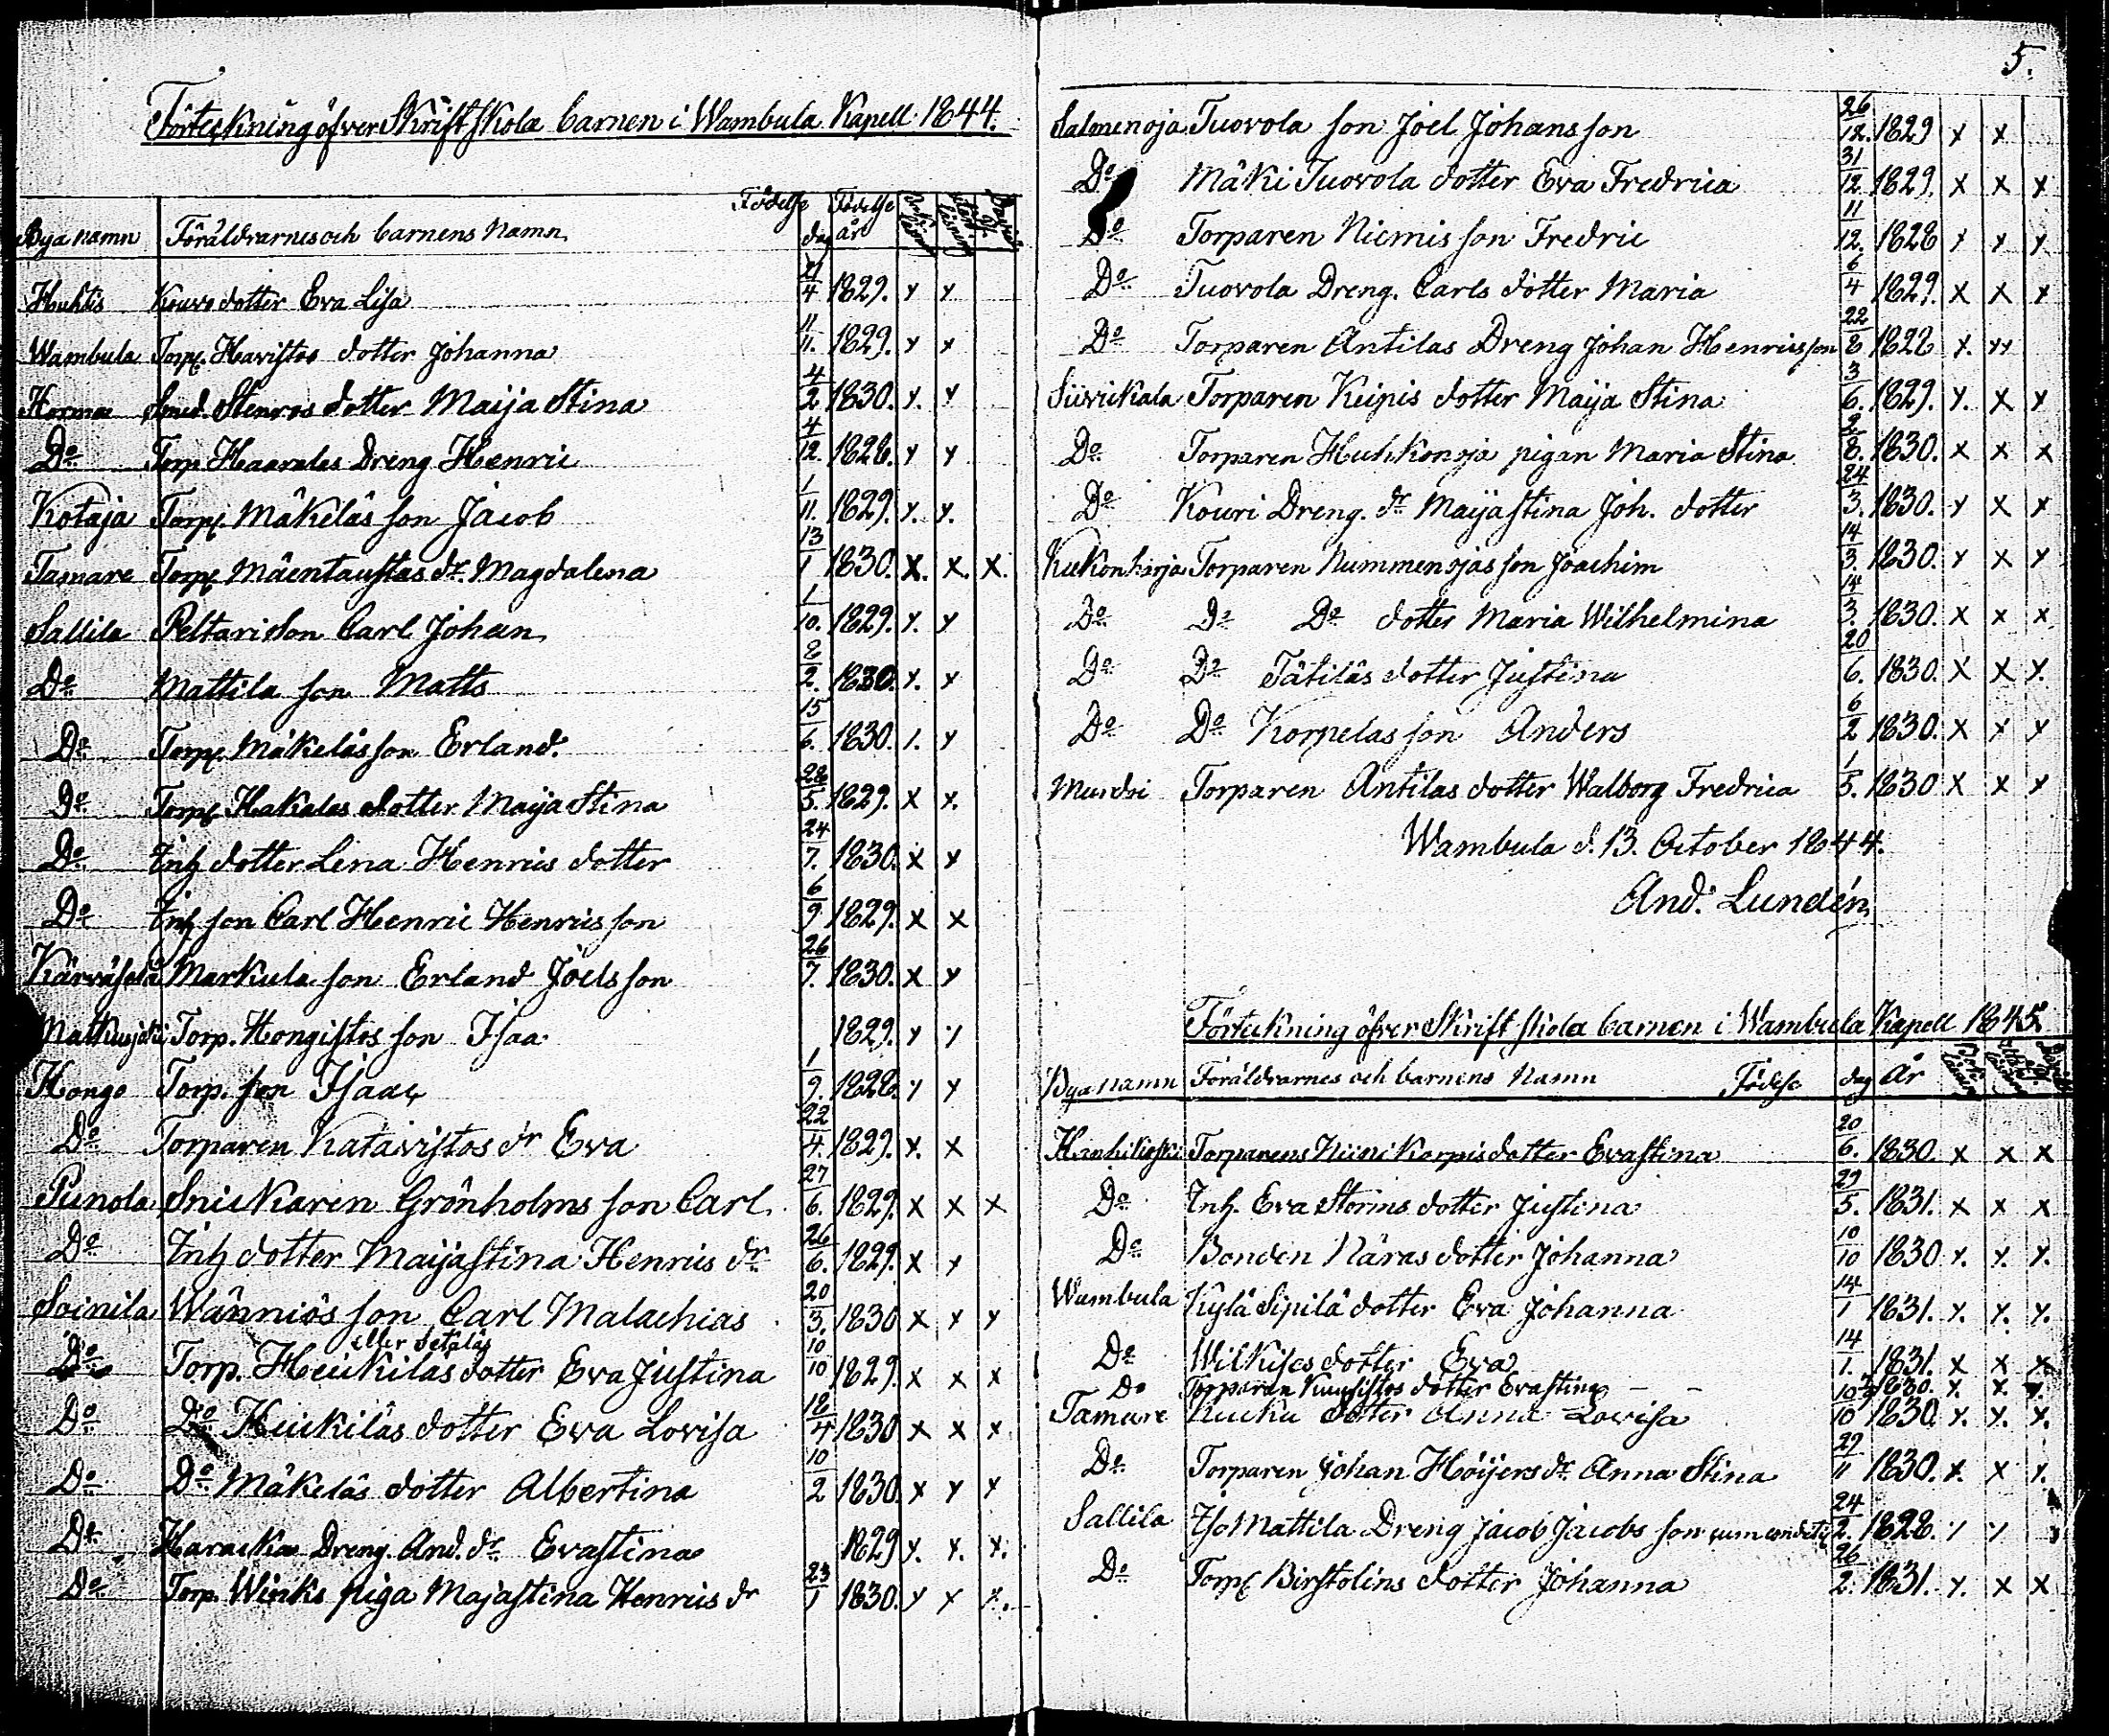 Förteckning öfver Skriftskola barnen i Wambula Kapell 1844.
Födelse Födelse
Bya namn Föräldrarnes och barnens Namn dag år
Huhtis Kouvo dotter Eva Lisa 21/4 1829. x x
Wambula Torp. Haavistos dotter Johanna 11/11. 1829. x x
Korma Smed. Stenros dotter Maija Stina 4/2 1830. x. x
Do Torp Haavales Dreng Henric 4/12. 1828. x x
Kotaja Torp. Mäkiläs son Jacob 1/11. 1829. x. x.
Tamare Torp. Mäentaustas dr. Magdalena 13/1 1830. x. x. x.
Sallila Peltari son Carl Johan 1/10. 1829. x. x
Do Mattila son Matts 8/2. 1830. x. x
Do Torp. Mäkeläs son Erland. 15/6. 1830. x. x
Do Torp. Hakalas dotter Maija Stina 28/5. 1829. x x.
Do Inh dotter Lena Henrics dotter 24/7. 1830. x x
Do Inh son Carl Henric Henrics son 6/9 1829. x x
Kärväselä Markula son Erland Joels son 26/7. 1830. x x
Torp. Hongistos son Isaa 1829. x x
Kongo Torp. son Isaac 1/9. 1828. x x
Do Torparen Katavistos dr Eva 22/4. 1829. x. x
Punola Snickaren Grönholms son Carl. 27/6. 1829. x x x
Do Inh dotter Maijastina Henrics dr 26/6. 1829. x x
Soinila Wänniös son Carl Malachias 20/3. 1830 x x x
eller Setäläs
Do Torp. Heickilas dotter Eva Justina 10/10 1829. x x x
Do Do Heickiläs dotter Eva Lovisa 18/4 1830 x x x
Do Do Mäkeläs dotter Albertina 10/2 1830. x x x
Do Haracka Dreng. And. dr. Evastina 1829 x. x. x.
Do Torp. Winks piga Majastina Henrics dr 23/1 1830. x x x.
5.
Salmenoja Tuovola son Joel Johansson 26/12. 1829 x x
Do Mäki Tuovola dotter Eva Fredrica 31/12. 1829. x x x
Do Torparen Niemis son Fredric 11/12. 1828 x x x
Do Tuovola Dreng. Carls dotter Maria 6/4 1829. x x x
Do Torparen Antilas Dreng Johan Henricsson 22/8 1828 x. xx
Siivickala Torparen Keipis dotter Maija Stina 3/6. 1829. x. x x
Do Torparen Huhkonoja pigan Maria Stina 2/8. 1830. x x x
Do Kouri Dreng. dr Maijastina Joh. dotter 24/3. 1830. x x x
Kuckonharja Torparen Nummenojas son Joachim 14/3. 1830. x x x
Do Do Do dotter Maria Wilhelmina 14/3. 1830. x x x
Do Do Tätiläs dotter Justina 20/6. 1830. x x x.
Do Do Korpelas son Anders 6/2 1830. x x x
Murdoi Torparen Antilas dotter Walborg Fredrica 1/5. 1830 x x x
Wambula d. 13. October 1844.
And. Lundén
Förteckning öfver Skriftskola barnen i Wambula Kapell 1845.
Bya namn Föräldrarnes och barnens Namn Födelse dag år
Torparens dotter Evastina 20/6. 1830. x x x
Do Inh. Eva Storms dotter Justina 29/5. 1831. x x x
Do Bonden Näras dotter Johanna 10/10 1830 x. x. x.
Wambula Kylä Sipilä dotter Eva Johanna 14/1 1831. x. x. x.
Do Wilkises dotter Eva 14/1. 1831. x x x
Do Torparen dotter Evastina — — 1830. x. x. x.
Tamare Kucku dotter Anna Lovisa 10 1830. x. x. x.
Do Torparen Johan Höijers dr. Anna Stina 29/11 1830. x. x x.
Sallila Iso Mattila Dreng Jacob Jacobs son 24/2. 1828. x x x
Do Torp. Birstolins dotter Johanna 26/2. 1831. x. x x